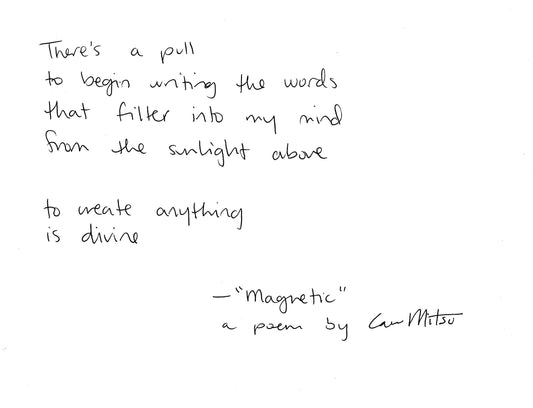 There's a pull
to begin writing the words
that filter into my mind
from the sunlight above
to create anything
is divine
—"Magnetic"
a poem by Mitsu